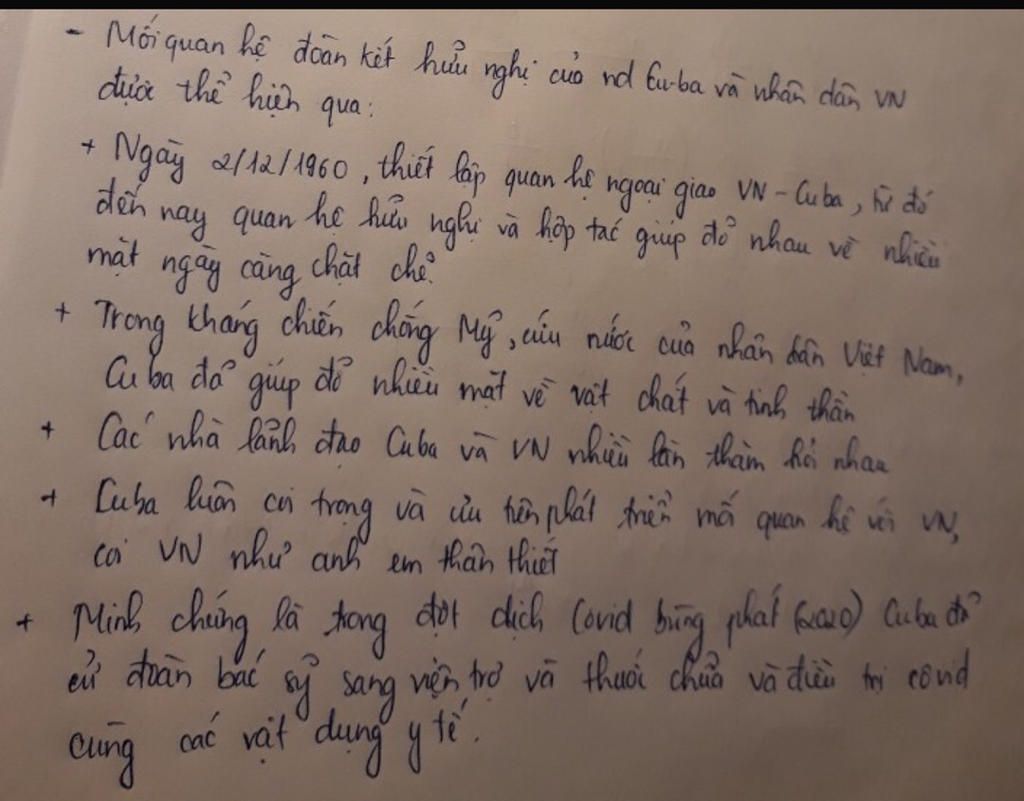 - Mối quan hệ đoàn kết hữu nghị của nd Cu-ba và nhân dân VN
được thể hiện qua:
+ Ngày 2/12/1960, thiết lập quan hệ ngoại giao VN - Cuba, từ đó
đến nay quan hệ hữu nghị và hợp tác giúp đỡ nhau về nhiều
mặt ngày càng chặt chẽ.
+ Trong kháng chiến chống Mỹ, cứu nước của nhân dân Việt Nam,
Cuba đã giúp đỡ nhiều mặt về vật chất và tinh thần
+ Các nhà lãnh đạo Cuba và VN nhiều lần thăm hỏi nhau
+ Cuba luôn coi trọng và ưu tiên phát triển mối quan hệ với VN,
coi VN như anh em thân thiết
+ Minh chứng là trong đợt dịch Covid bùng phát (2020) Cuba đã
cử đoàn bác sỹ sang viện trợ và thuốc chữa và điều trị covid
cùng các vật dụng y tế.